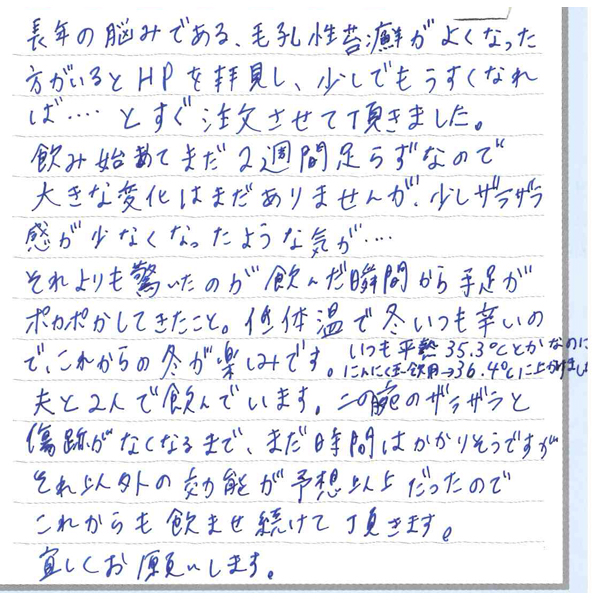 長年の悩みである、毛孔性苔癬がよくなった
方がいるとHPを拝見し、少しでもうすくなれ
ば‥‥とすぐ注文させて頂きました。
飲み始めてまだ2週間足らずなので
大きな変化はまだありませんが、少しザラザラ
感が少なくなったような気が‥‥
それよりも驚いたのが飲んだ瞬間から手足が
ポカポカしてきたこと。低体温で冬いつも辛いの
で、これからの冬が楽しみです。
いつも平熱35.3℃とかなのに
飲用→36.4℃に上がりまし
夫と2人で飲んでいます。この腕のザラザラと
傷跡がなくなるまで、まだ時間はかかりそうですが
それ以外の効能が予想以上だったので
これからも飲ませ続けて頂きます。
宜しくお願いします。